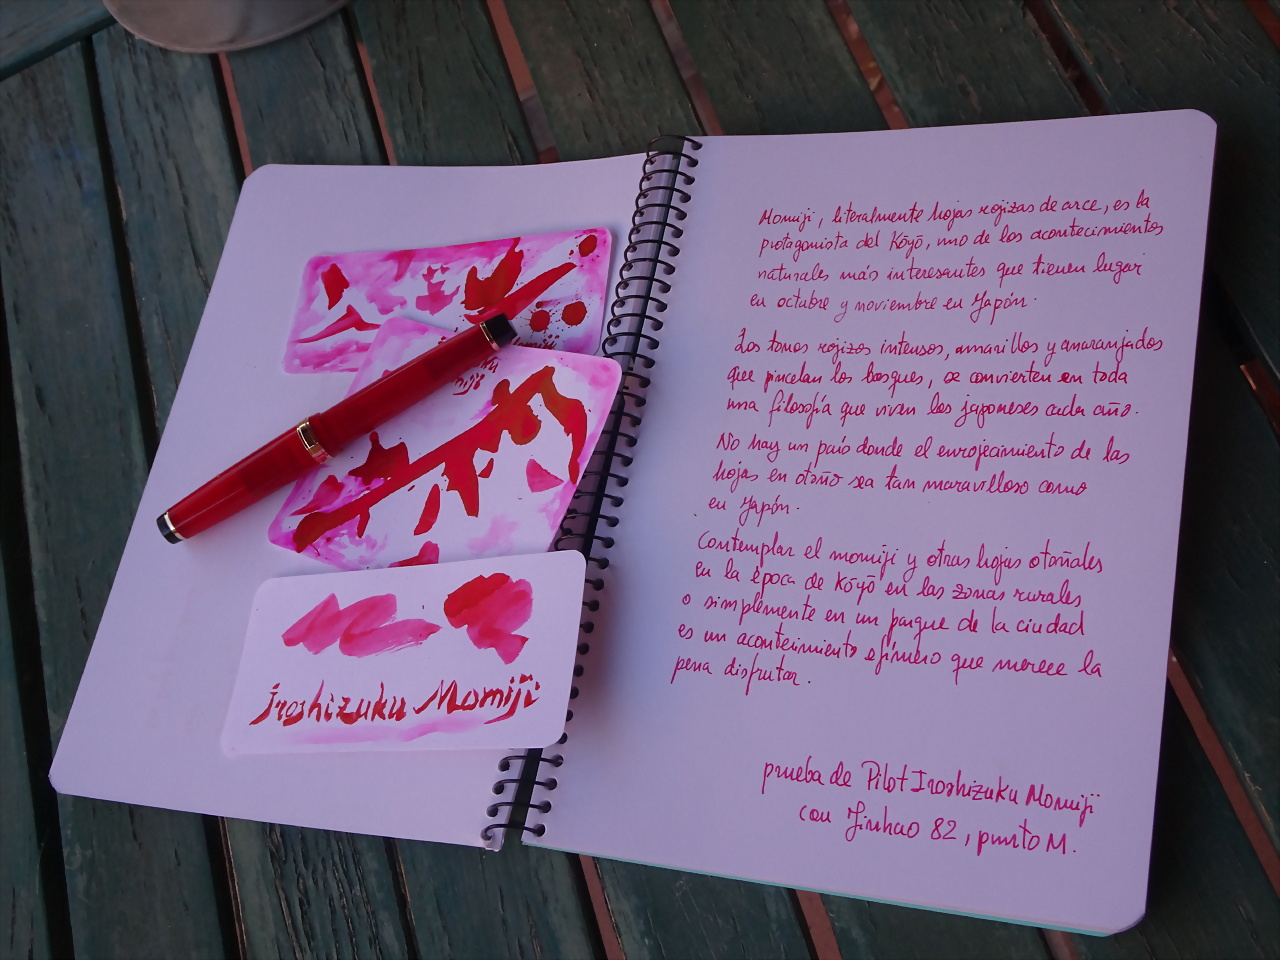 Momiji
Iroshizuku Momiji
Momiji, literalmente hojas rojizas de arce, es la
protagonista del Kōyō, uno de los acontecimientos
naturales más interesantes que tienen lugar
en octubre y noviembre en Japón.
Los tonos rojizos intensos, amarillos y anaranjados
que pincelan los bosques, se convierten en toda
una filosofía que viven los japoneses cada año.
No hay un país donde el enrojecimiento de las
hojas en otoño sea tan maravilloso como
en Japón.
Contemplar el momiji y otras hojas otoñales
en la época de Kōyō en las zonas rurales
o simplemente en un parque de la ciudad
es un acontecimiento efímero que merece la
pena disfrutar.
prueba de Pilot Iroshizuku Momiji
con Jinhao 82, punto M.